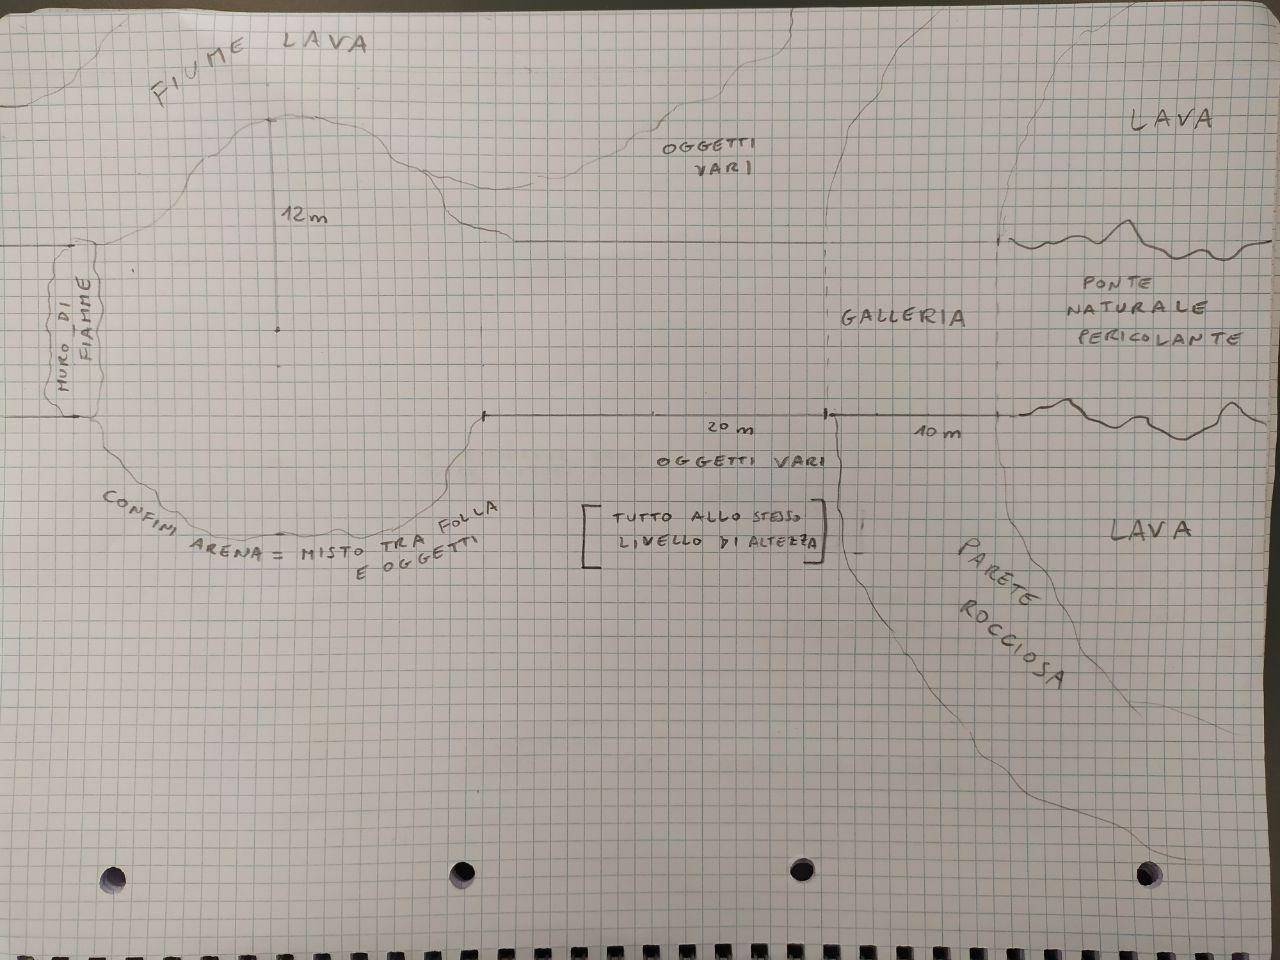 FIUME LAVA
LAVA
OGGETTI
VARI
12m
MURO DI
FIAMME
GALLERIA
PONTE
NATURALE
PERICOLANTE
20 m
10 m
OGGETTI VARI
CONFINI ARENA = MISTO TRA FOLLA
E OGGETTI
TUTTO ALLO STESSO
LIVELLO DI ALTEZZA
LAVA
PARETE
ROCCIOSA